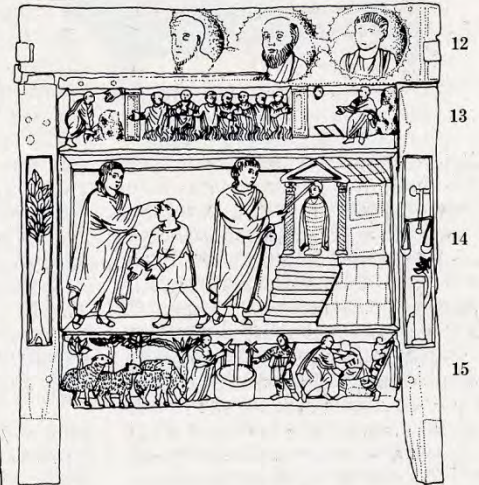 12
13
14
15